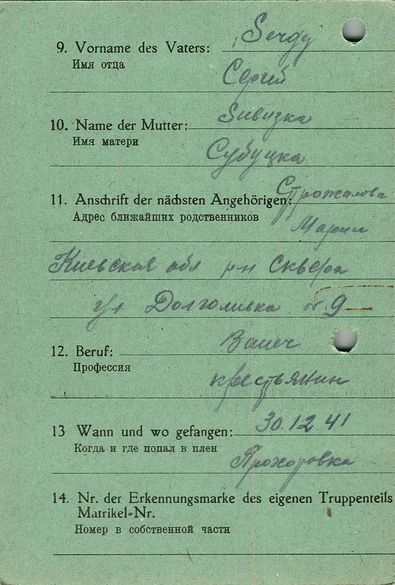 9. Vorname des Vaters: Sergy
Имя отца
Сергий
10. Name der Mutter:
Имя матери
Субуцка
11. Anschrift der nächsten Angehörigen:
Адрес ближайших родственников
Марии
Киевская обл р-н Сквера
Долголивка № 9
12. Beruf: Bauer
Профессия
крестьянин
13 Wann und wo gefangen: 30.12.41
Когда и где попал в плен
Прохоровка
14. Nr. der Erkennungsmarke des eigenen Truppenteils
Matrikel-Nr.
Номер в собственной части